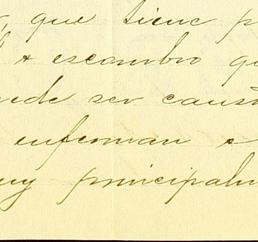 que tiene p
y escambro qu
uede ser caus
enferman e
uy principalm